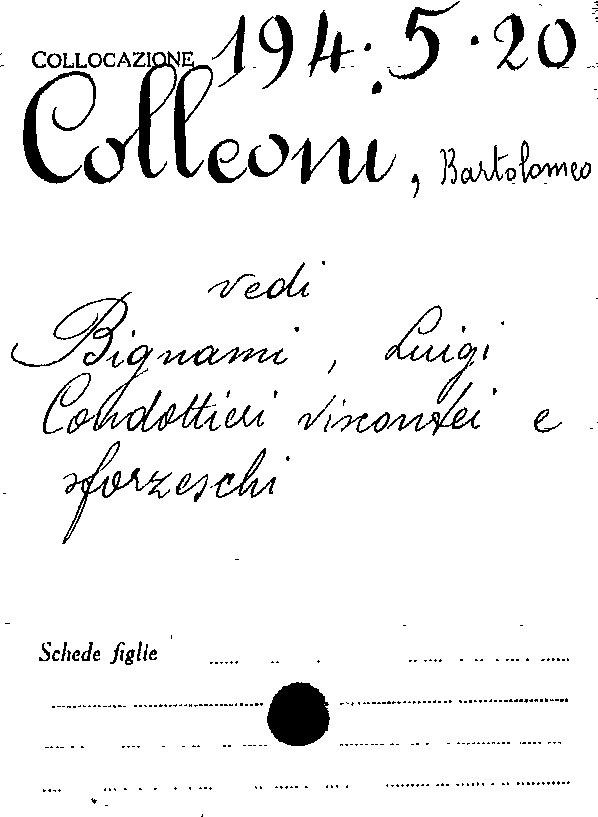 COLLOCAZIONE 194.5.20
Colleoni, Bartolomeo
vedi
Bignami, Luigi
Condottieri viscontei e
sforzeschi
Schede figlie